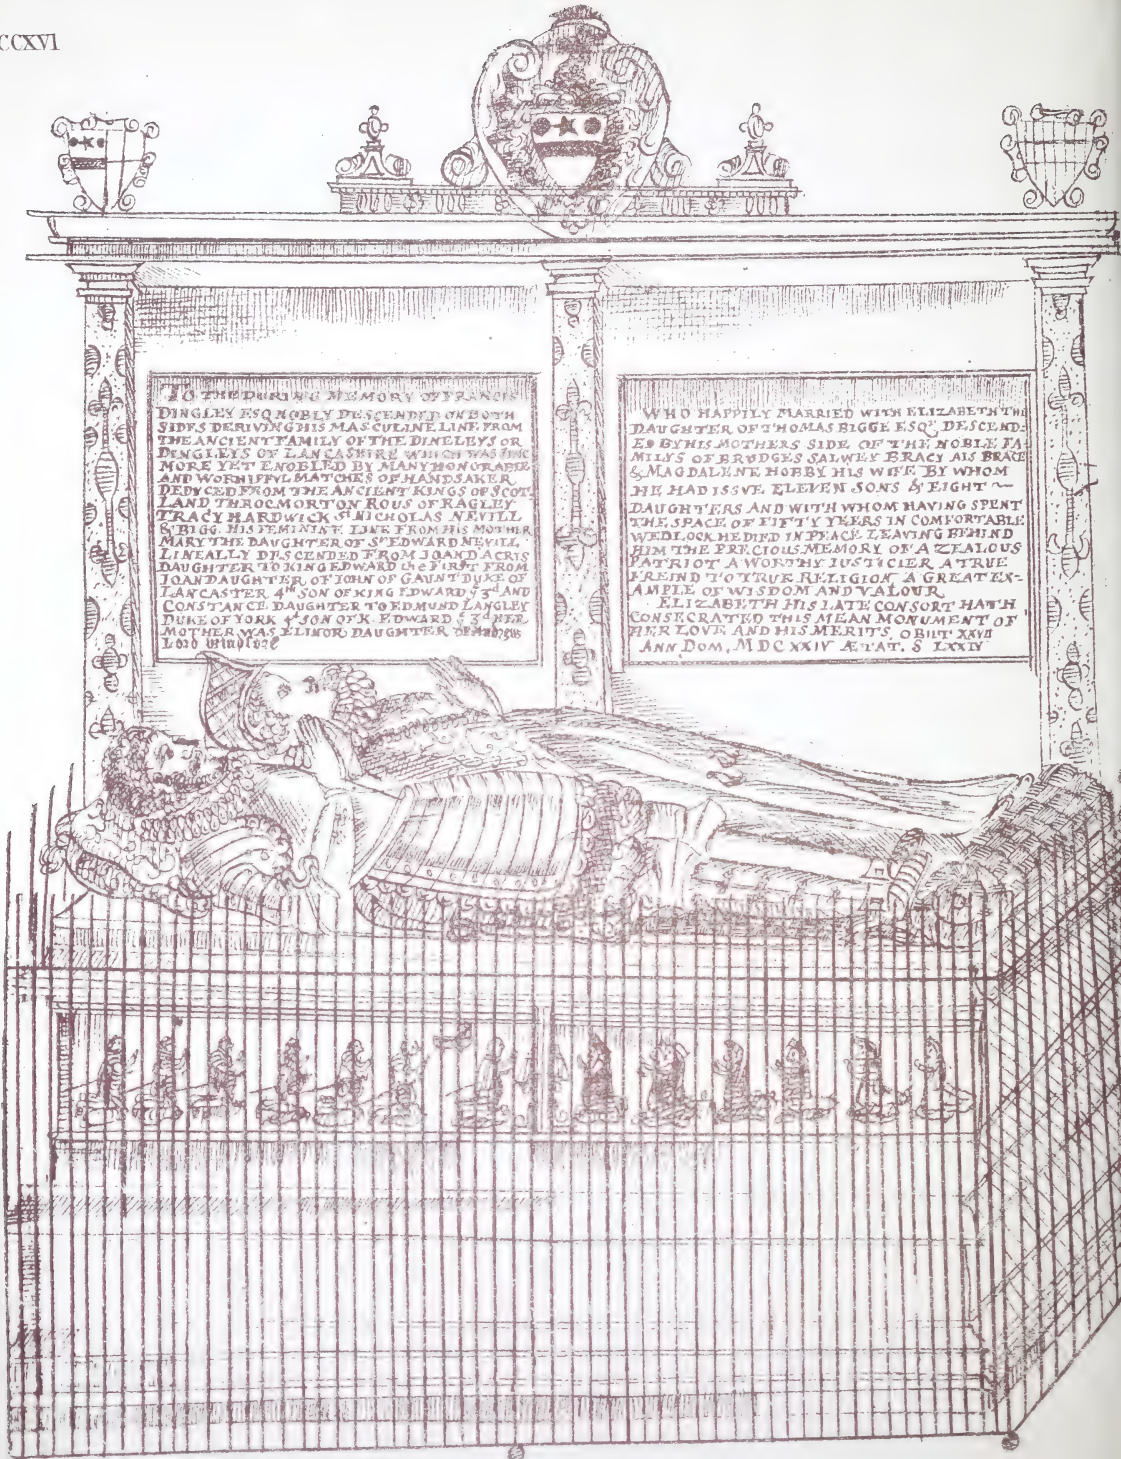 CCXVI
TO THE DURING MEMORY OF FRANCIS
DINGLEY ESQ NOBLY DESCENDED ON BOTH
SIDES DERIVING HIS MASCULINE LINE FROM
THE ANCIENT FAMILY OF THE DINELEYS OR
DINGLEYS OF LANCASHIRE WHICH WAS
MORE YET ENOBLED BY MANY HONORABLE
AND WORSHIPFVL MATCHES OF HANDSAKER
DEDVCED FROM THE ANCIENT KINGS OF SCOT
LAND THROCMORTON ROUS OF RAGLEY
TRACY HARDWICK Sr NICHOLAS NEVILL
& BIGG. HIS FEMININE LINE FROM HIS MOTHER
MARY THE DAUGHTER OF Sr EDWARD NEVILL
LINEALLY DESCENDED FROM JOAN D ACRIS
DAUGHTER TO KING EDWARD the FIRST FROM
JOAN DAUGHTER OF IOHN OF GAUNT DUKE OF
LANCASTER 4th SON OF KING EDWARD ye 3d AND
CONSTANCE DAUGHTER TO EDMUND LANGLEY
DUKE OF YORK 4th SON OF K. EDWARD ye 3d HER
MOTHER WAS ELINOR DAUGHTER OF Andrews
Lord Windsore
WHO HAPPILY MARRIED WITH ELIZABETH THE
DAUGHTER OF THOMAS BIGGE ESQr DESCEND-
ED BY HIS MOTHERS SIDE OF THE NOBLE FA-
MILYS OF BRUDGES SALWEY BRACY AlS BRACE
& MAGDALENE HOBBY HIS WIFE BY WHOM
HE HAD ISSVE ELEVEN SONS & EIGHT ~
DAUGHTERS AND WITH WHOM HAVING SPENT
THE SPACE OF FIFTY YEERS IN COMFORTABLE
WEDLOCK HE DIED IN PEACE LEAVING BEHIND
HIM THE PRECIOUS MEMORY OF A ZEALOUS
PATRIOT A WORTHY IUSTICIER A TRUE
FREIND TO TRUE RELIGION A GREAT EX-
AMPLE OF WISDOM AND VALOUR
ELIZABETH HIS LATE CONSORT HATH
CONSECRATED THIS MEAN MONUMENT OF
HER LOVE AND HIS MERITS OBIIT XXVII
ANN DOM. MDCXXIV ÆTAT. S LXXIV